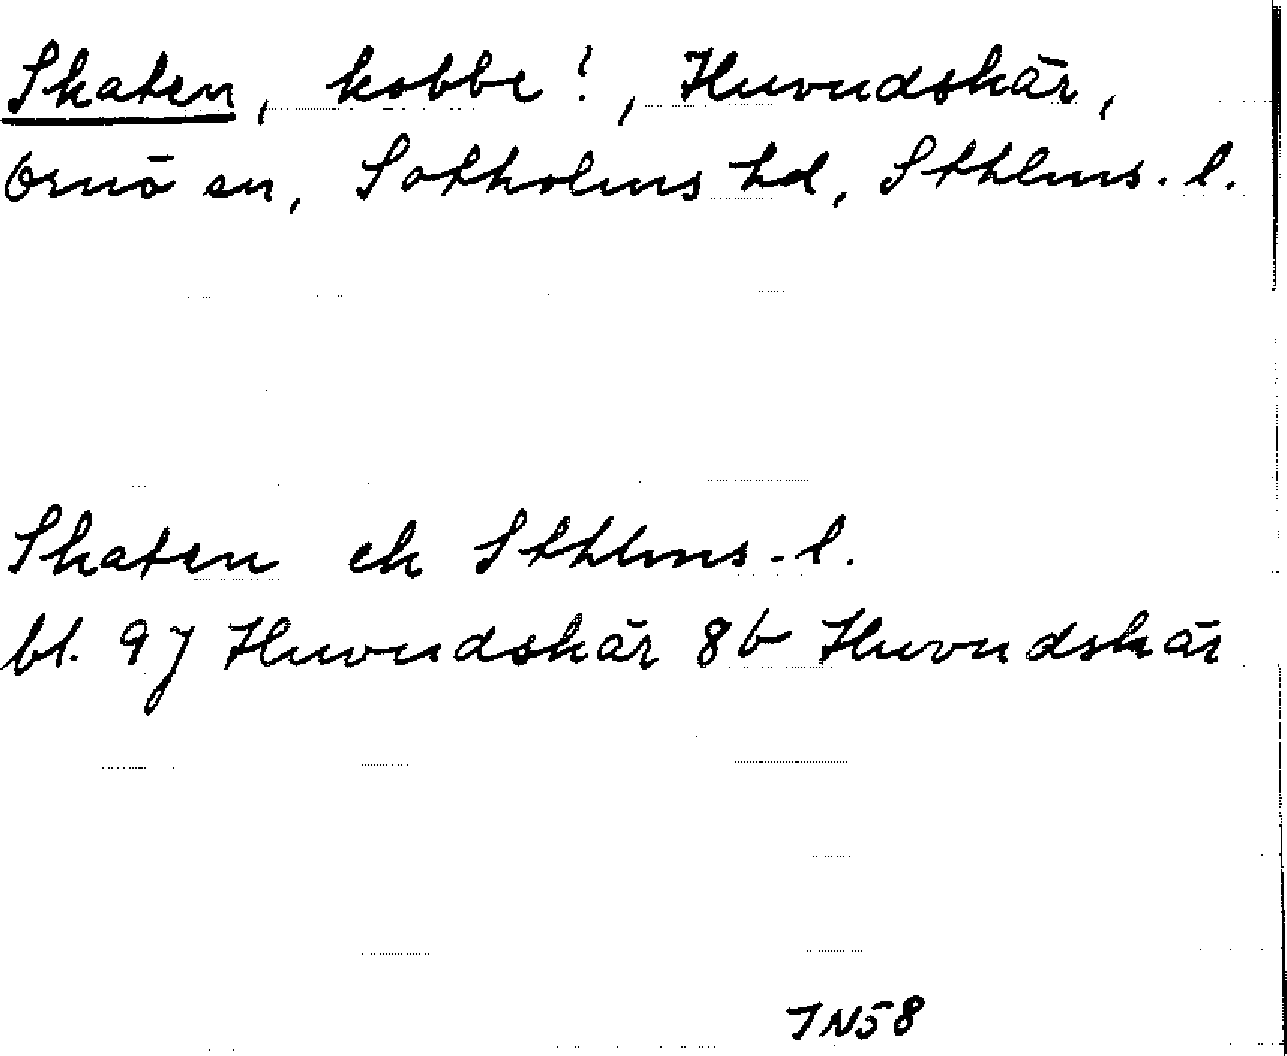 Skaten, kobbe!, Huvudskär,
Ornö sn, Sotholms hd, Sthlms. l.
Skaten ek Sthlms. l.
bl. 97 Huvudskär 8b Huvudskär
IN58